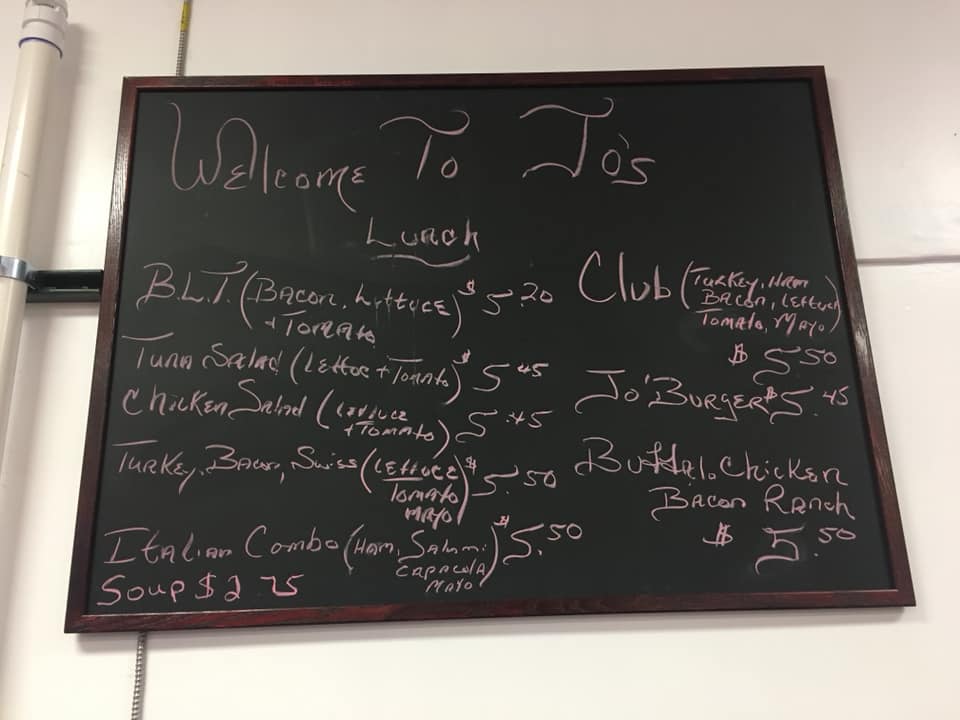 Welcome To Jo's
Lunch
B.L.T. (Bacon, Lettuce $ 5.20
+ Tomato)
Tuna Salad (Lettuc + Tomato) $ 5.45
Chicken Salad (Lettuce 5.45
+ Tomato)
Turkey, Bacon, Swiss (Lettuce $ 5.50
Tomato
Mayo)
Italian Combo (Ham, Salami $ 5.50
Capacola
Mayo)
Soup $2.75
Club (Turkey, Ham
Bacon, Lettuce
Tomato, Mayo)
$ 5.50
Jo' Burger $5.45
Buffalo Chicken
Bacon Ranch
$ 5.50